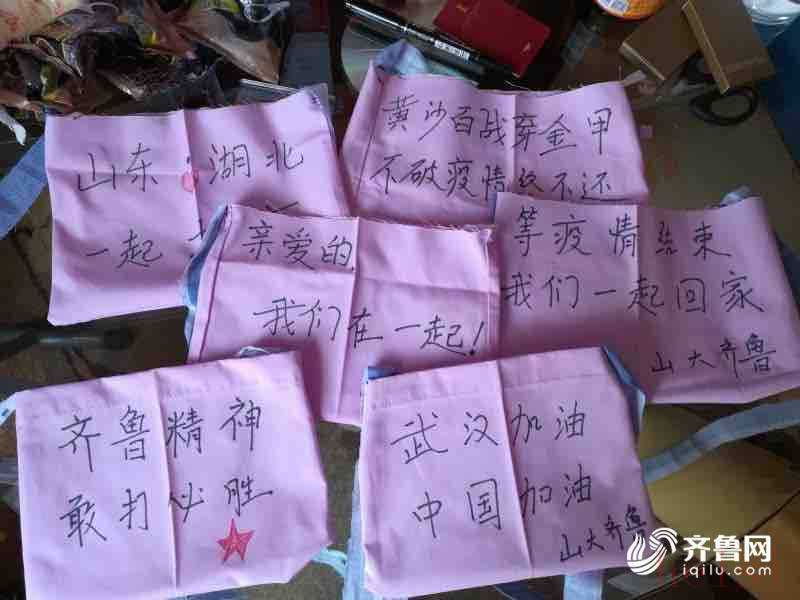 山东 湖北
一起
黄沙百战穿金甲
不破疫情终不还
亲爱的,
我们在一起!
等疫情结束
我们一起回家
山大齐鲁
齐鲁精神
敢打必胜
武汉加油
中国加油
山大齐鲁
齐鲁网
iqilu.com